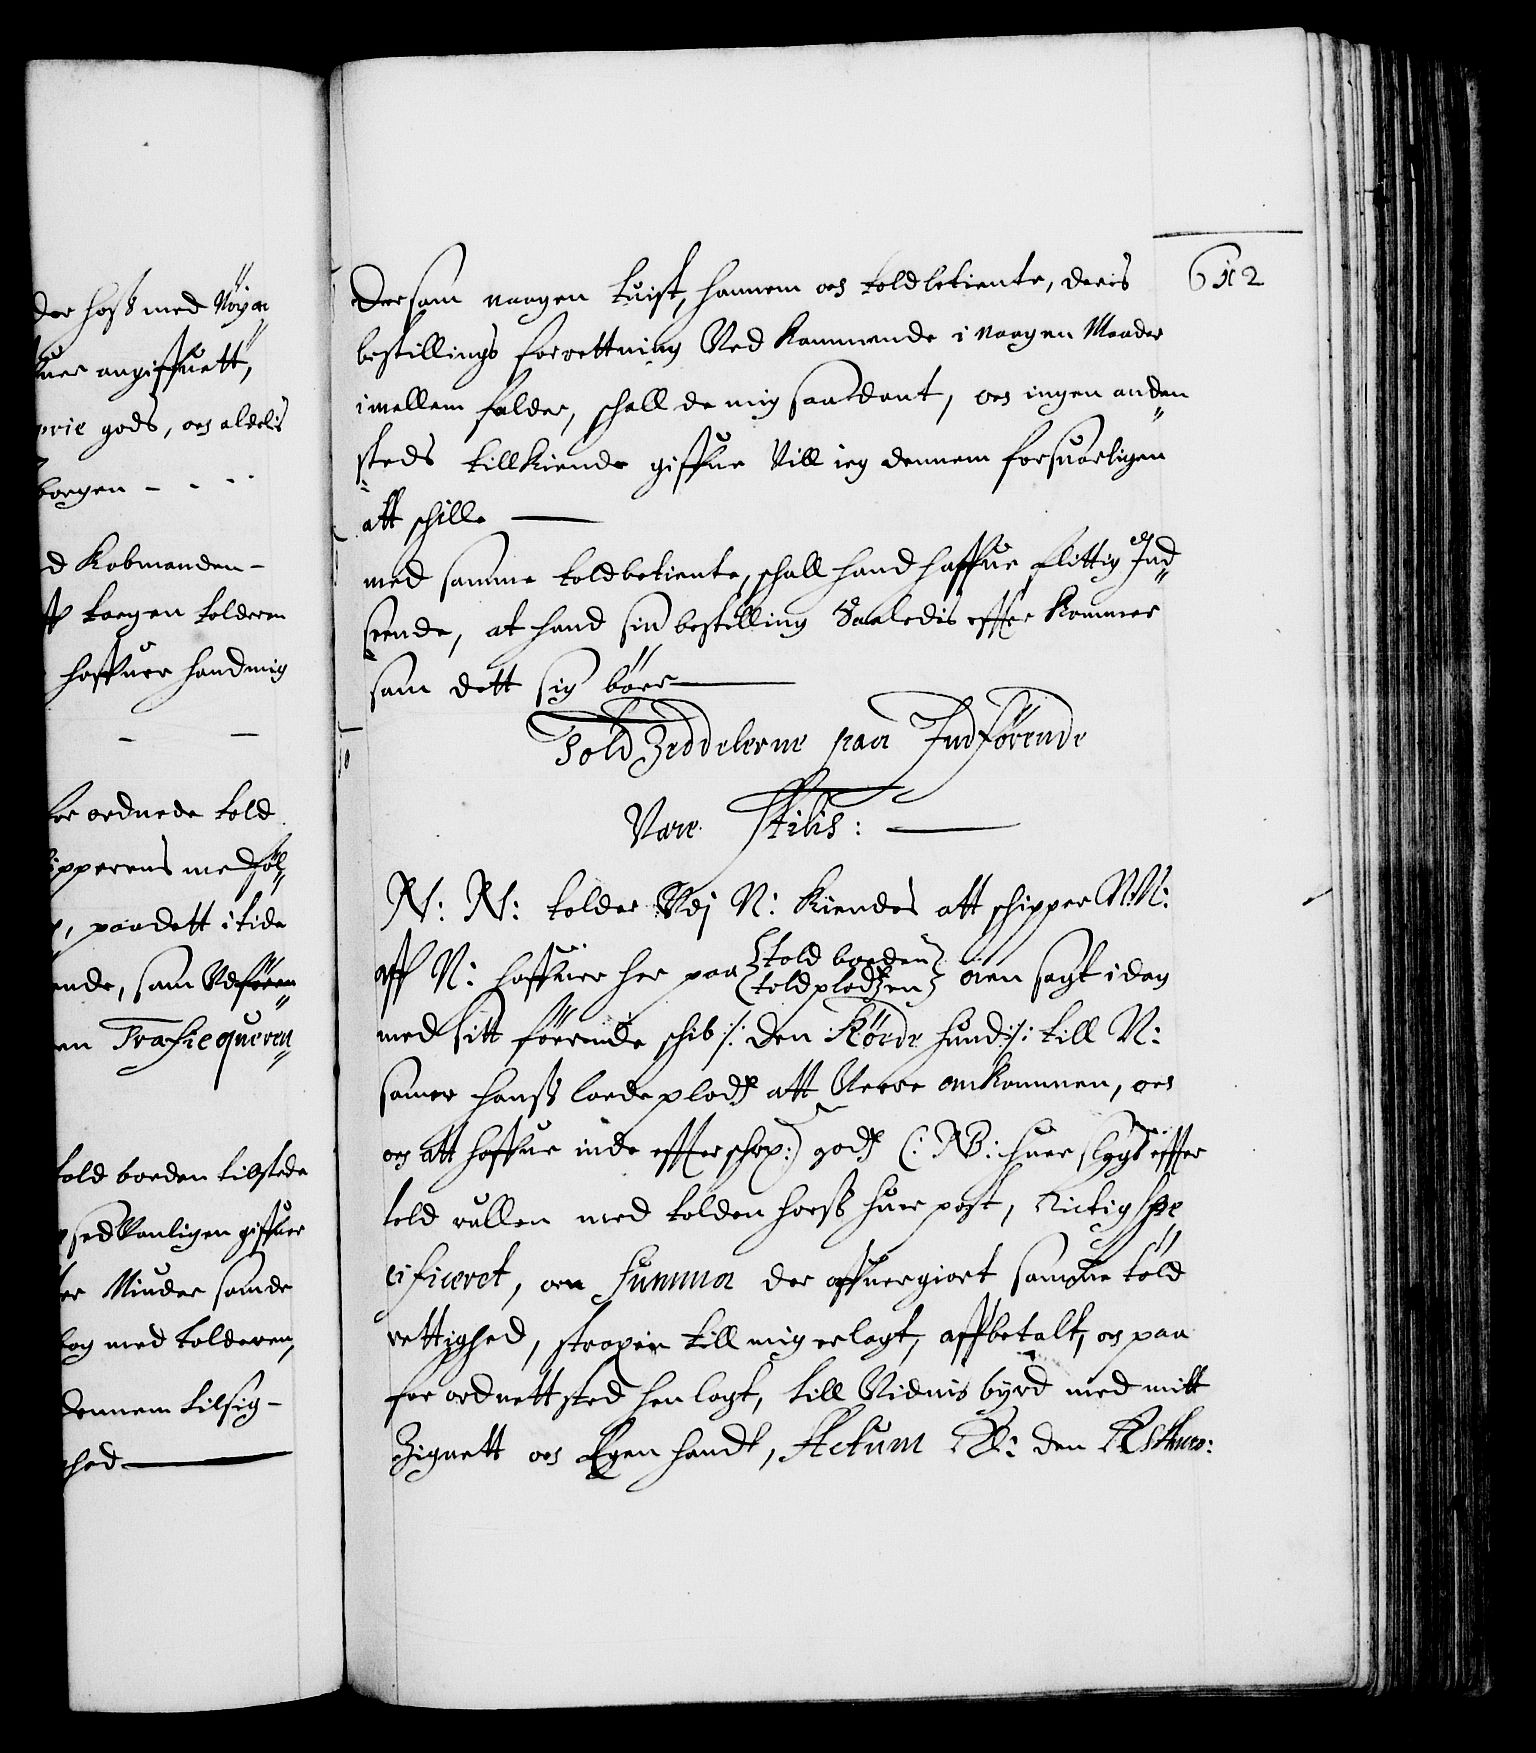 der hoss med Nöyac„
huer angiffuett,
gods, oc aldelis
borgen - - - -
d Kobmanden -
torgen tolderen
haffuer hand mig
for ordnede told
schipperens med föl„
paa dett i tide
ende, som Udfören„
en Trafiequeren„
told boeden tilstede
sedvanligen giffuer
Minder samde
log med tolderen,
dennem tilsig-
ghed
612
Dersom naagen tuist, hannem oc toldbetiente, deris
bestillings forrettning Ved Kommende i naagen Maader
imellem falder, schall de mig saadant, oc ingen anden„
steds tillkiende giffue Vill ieg dennem forsuarligen
att schille
med samme toldbetiente, schall hand haffue flittig Ind„
seende, at hand sin bestilling Saaledis effter Kommer
som dett sig bör
Told Zeddelerne paa Indförende
Vare Stilis:
N: N: tolder Vdj N: Kiendes att schipper N:N:
aff N: haffuer her paa told boeden
toldplodtzen öien sagt i dag
med sitt förende schib /: den Rörde hund :/ till N:
samer hanss laede plodtz att Verre omkommen, oc
oc att haffue inde effterschr: godtz (: NB: huer slags effter
told rullen med tolden hoess huer post, Rictig spe„
cificeret, en Summa der offuergiort samme told
rettighed, strax er till mig erlagt, aff betalt, oc paa
for ordnett sted hen lagt, till Vidnis byrd med mitt
Zignett oc Egen handt, Actum N: den